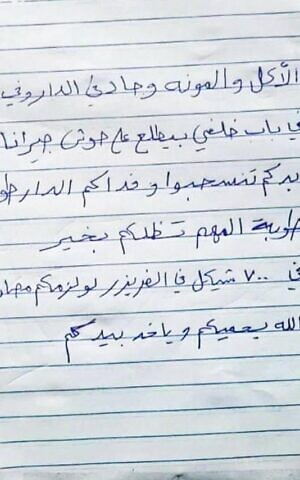 الأكل والمونه وجاد في الدار وفي
في باب خلفي بيطلع ع حوش جيرانا
بدكم تنسحبوا وفداكم الدار طو
طوبة المهم تظلكم بخير
في ٧٠٠ شيكل في الفريزر لو لزمكم مصار
الله يحميكم وياخد بيدكم